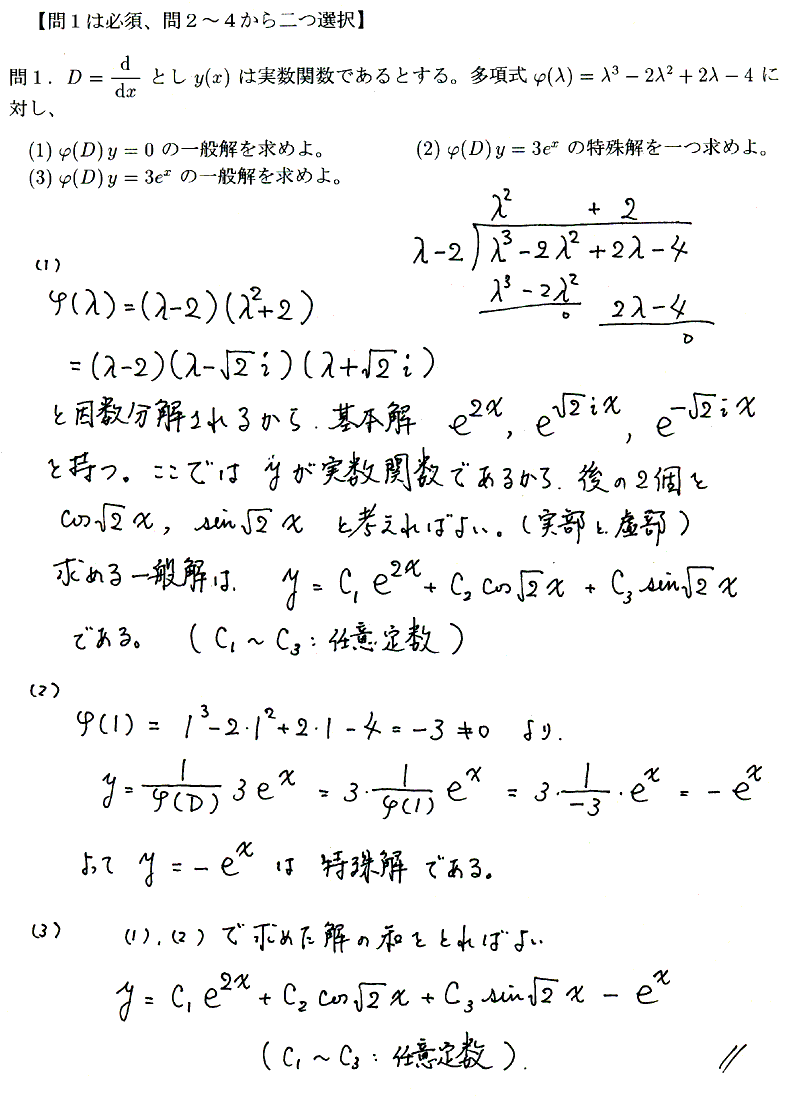 【問１は必須、問２～４から二つ選択】
問１．D = d/dx とし y(x) は実数関数であるとする。多項式 φ(λ) = λ³ − 2λ² + 2λ − 4 に
対し、
(1) φ(D) y = 0 の一般解を求めよ。 (2) φ(D) y = 3eˣ の特殊解を一つ求めよ。
(3) φ(D) y = 3eˣ の一般解を求めよ。
λ² + 2
λ-2 ) λ³-2λ²+2λ-4
λ³-2λ² 2λ-4
0 0
(1)
φ(λ)=(λ-2)(λ²+2)
=(λ-2)(λ-√2 i)(λ+√2 i)
と因数分解されるから、基本解 e^{2x}, e^{√2 i x}, e^{-√2 i x}
を持つ。ここでは yが実数関数であるから、後の2個を
cos√2 x, sin√2 x と考えればよい。(実部と虚部)
求める一般解は、 y = C₁ e^{2x} + C₂ cos√2 x + C₃ sin√2 x
である。 (C₁ ~ C₃ : 任意定数)
(2)
φ(1) = 1³-2·1²+2·1-4 = -3 ≠0 より、
y = 1/φ(D) 3eˣ = 3·1/φ(1) eˣ = 3·1/-3·eˣ = -eˣ
よって y = -eˣ は 特殊解 である。
(3) (1), (2) で求めた解の和をとればよい
y = C₁ e^{2x} + C₂ cos√2 x + C₃ sin√2 x - eˣ
(C₁ ~ C₃ : 任意定数). //